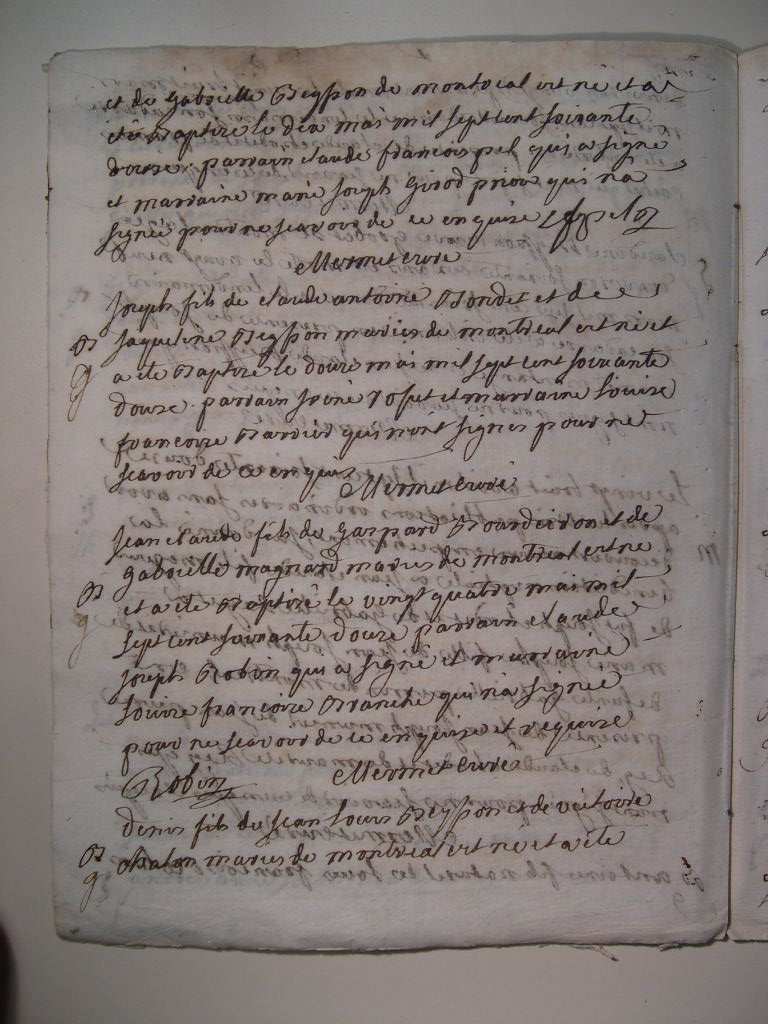 et de gabrielle Beysson de montreal est né et a
eté Baptisé le dix mai mil sept cent soixante
douze. parrain claude francois pel qui a signé
et marraine marie joseph girod prior qui n'a
signée pour ne scavoir de ce enquise
Mermet curé
joseph fils de claude antoine Bondet et de
B jaqueline Beysson mariés de montreal est né et
g a ete Baptisé le douze mai mil sept cent soixante
douze. parrain joset et marraine louise
francoise Barbier qui n'ont signés pour ne
scavoir de ce enquis
Mermet curé
jean claude fils de gaspard Bourdeidon et de
gabrielle magnard mariés de montreal est né
B et a ete Baptisé le vingt quatre mai mil
g sept cent soixante douze parrain claude
joseph Robin qui a signé et marraine
louise francoise Branche qui n'a signée
pour ne scavoir de ce enquise et requise
Robin Mermet curé
denis fils de jean louis Beysson et de victoire
B chalon mariés de montreal est né et a ete
g